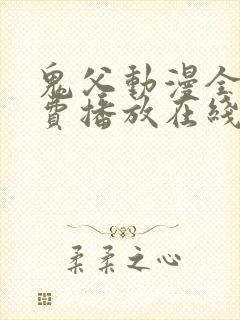 鬼父動漫全
費播放在綫
柔柔之心